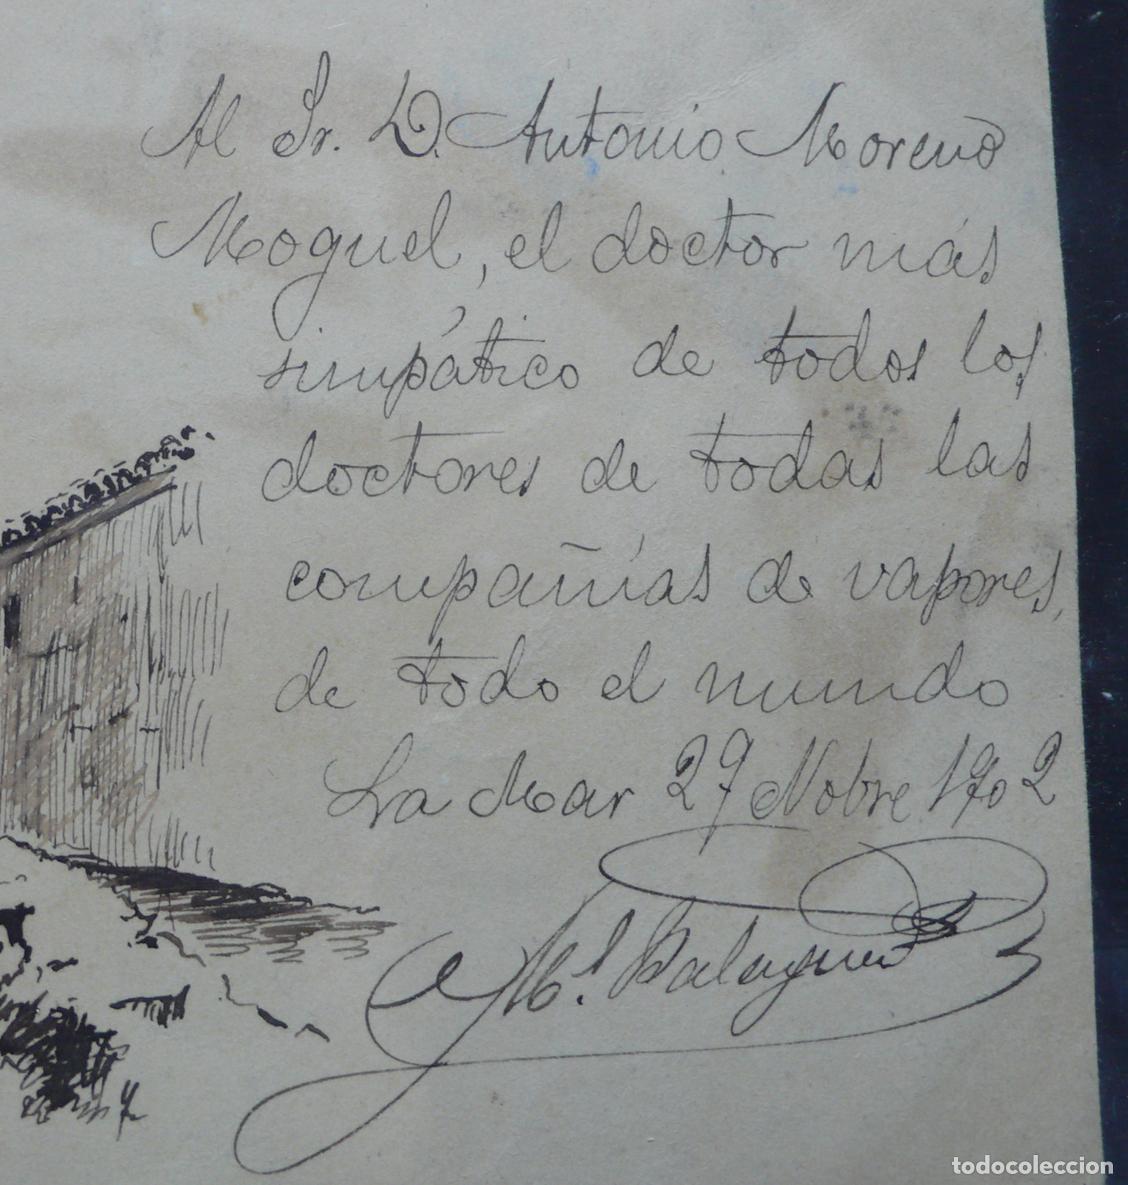 Al Sr. D. Antonio Moreno
Moguel, el doctor más
simpático de todos los
doctores de todas las
compañías de vapores,
de todo el mundo
La Mar 27 Nobre 1902
Ml. Balaguer
todocoleccion